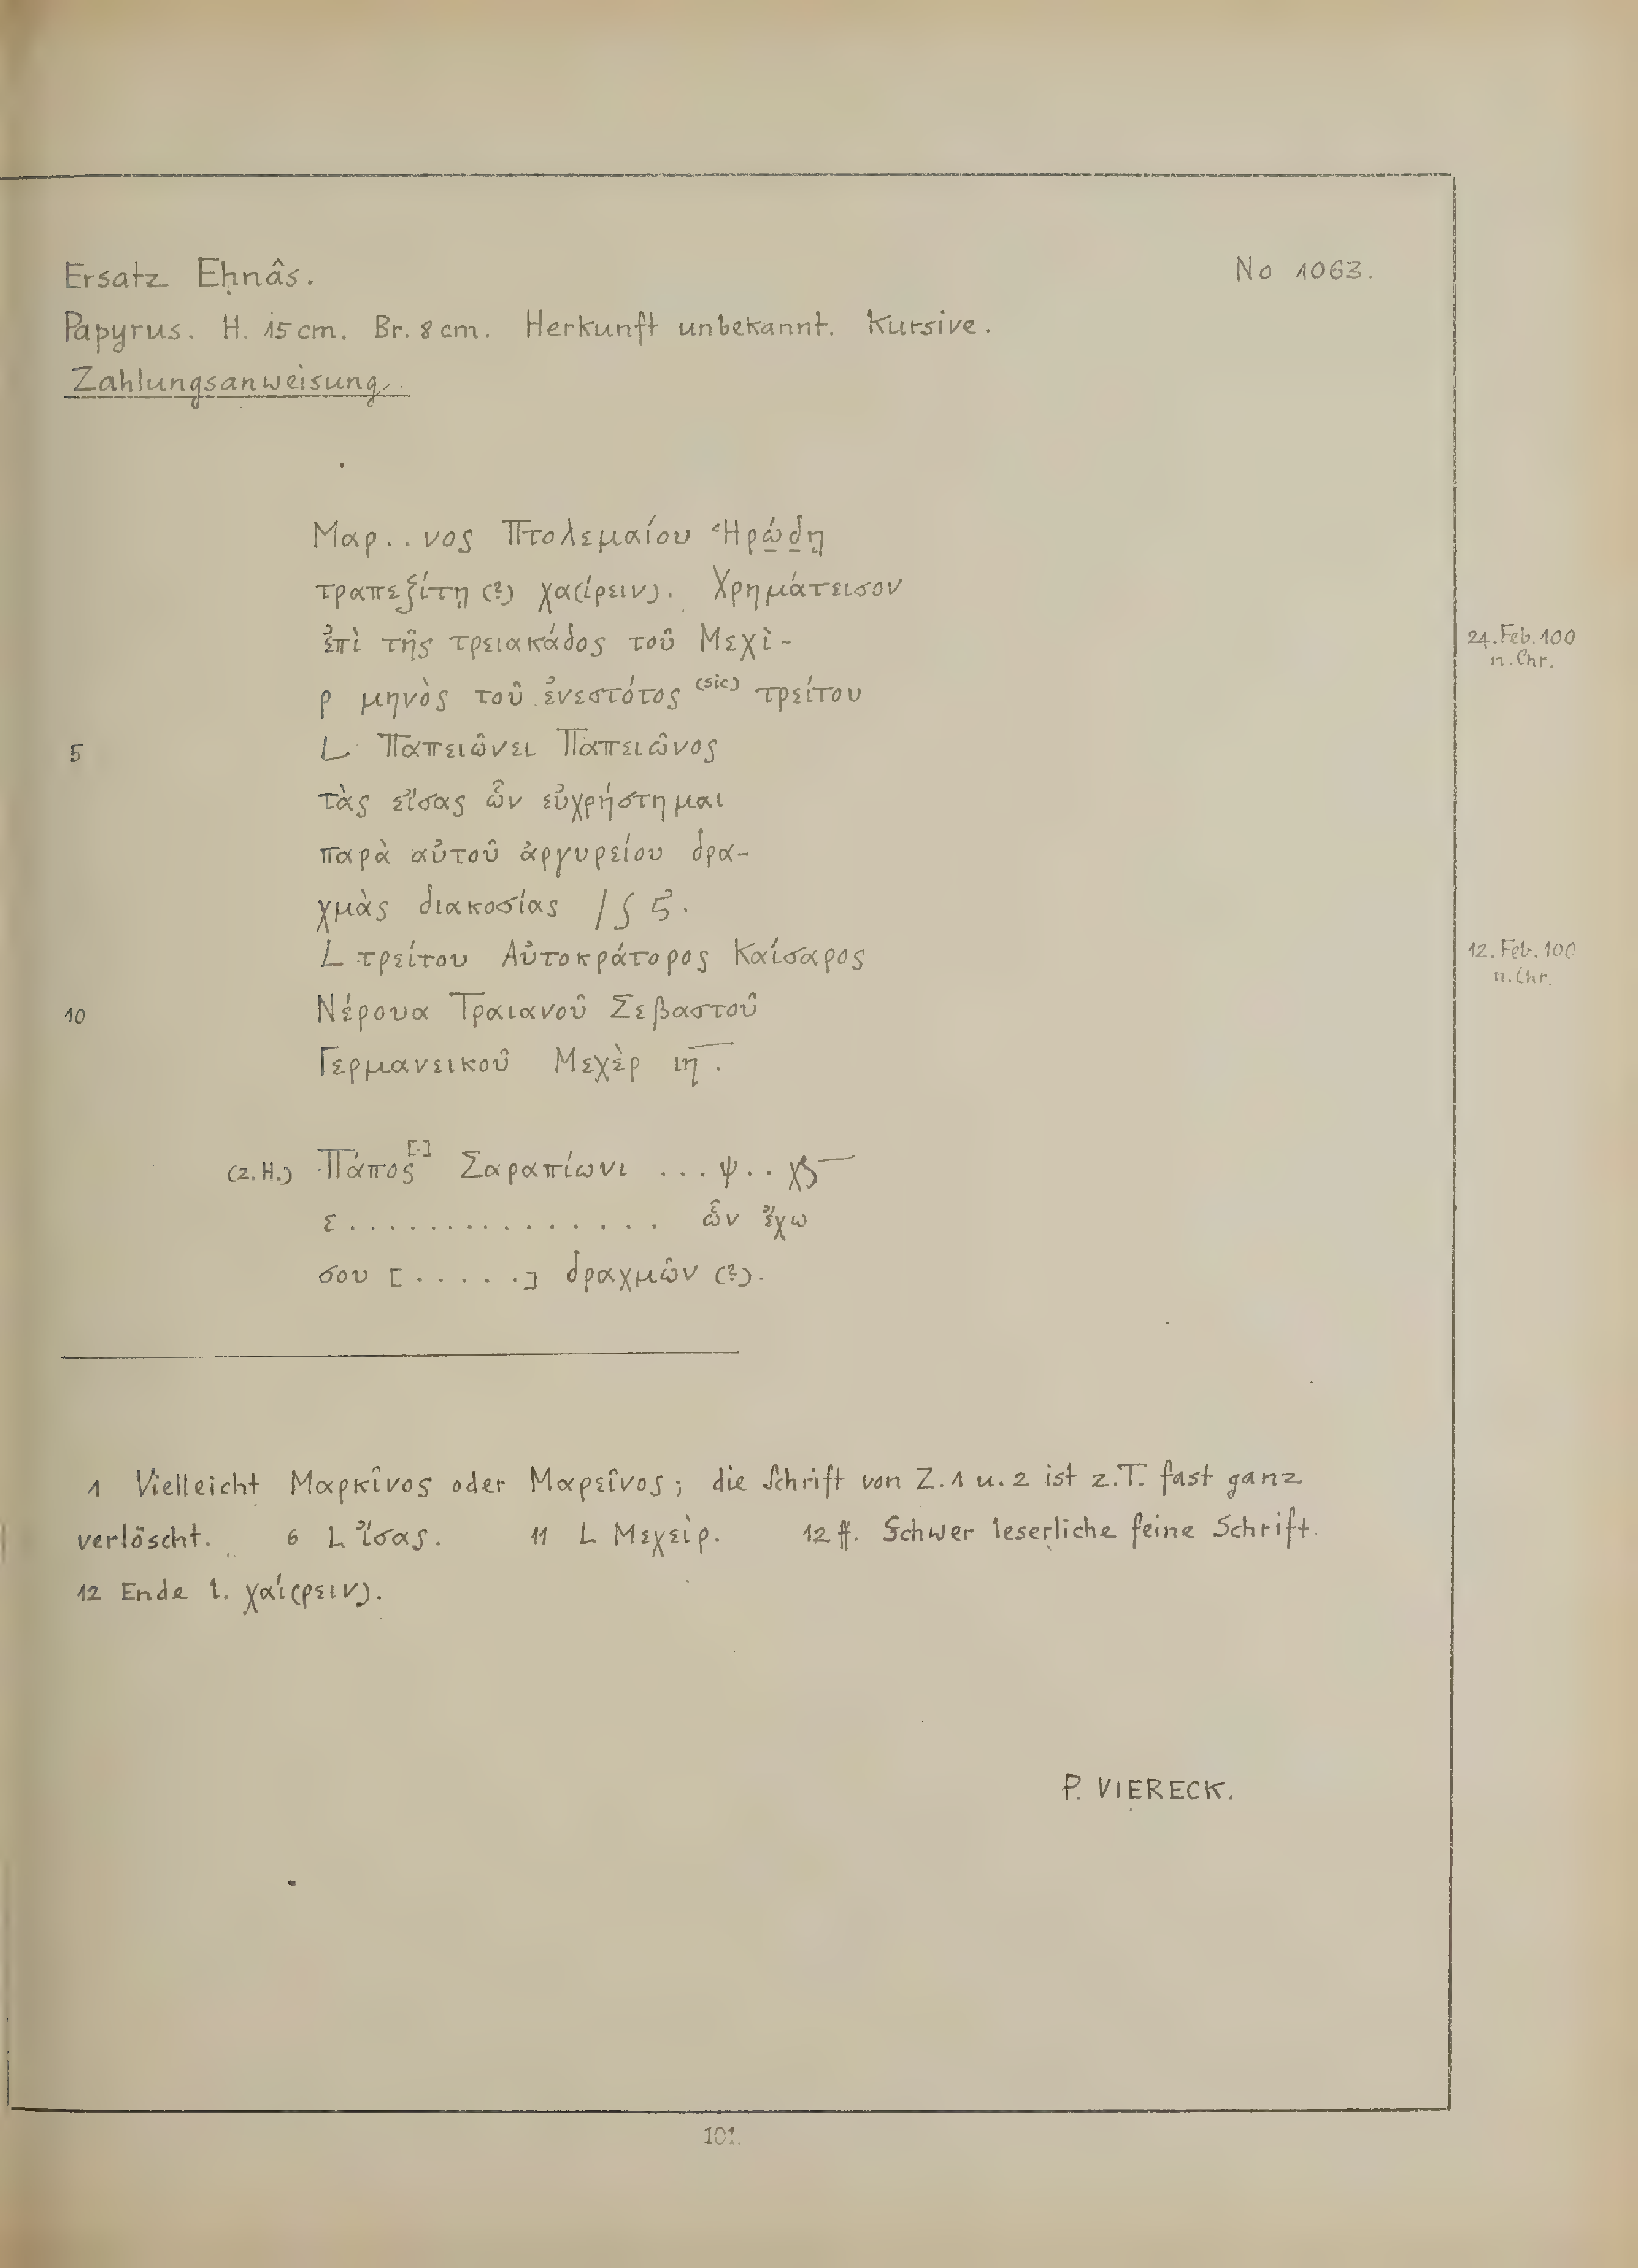 Ersatz Eḥnâs. No 1063.
Papyrus. H. 15 cm. Br. 8 cm. Herkunft unbekannt. Kursive.
Zahlungsanweisung.
Μαρ..νος Πτολεμαίου Ἡρώ̣δ̣ῃ
τραπεζίτῃ (?) χα(ίρειν). Χρημάτεισον
ἐπὶ τῆς τρειακάδος τοῦ Μεχὶ- 24. Feb. 100 n. Chr.
ρ μηνὸς τοῦ ἐνεστότος (sic) τρείτου
5 L Παπειῶνει Παπειῶνος
τὰς εἴσας ὧν εὐχρήστημαι
παρὰ αὐτοῦ ἀργυρείου δρα-
χμὰς διακοσίας / ʃ ς.
L τρείτου Αὐτοκράτορος Καίσαρος 12. Feb. 100 n. Chr.
10 Νέρουα Τραιανοῦ Σεβαστοῦ
Γερμανεικοῦ Μεχὲρ ιη̅.
(2. H.) Πάπος[.] Σαραπίωνι ...ψ..
ε............... ὧν ἔχω
σου [......] δραχμῶν (?).
1 Vielleicht Μαρκῖνος oder Μαρεῖνος; die Schrift von Z. 1 u. 2 ist z. T. fast ganz
verlöscht. 6 L ἴσας. 11 L Μεχεὶρ. 12 ff. Schwer leserliche feine Schrift.
12 Ende l. χαί(ρειν).
P. VIERECK.
101.